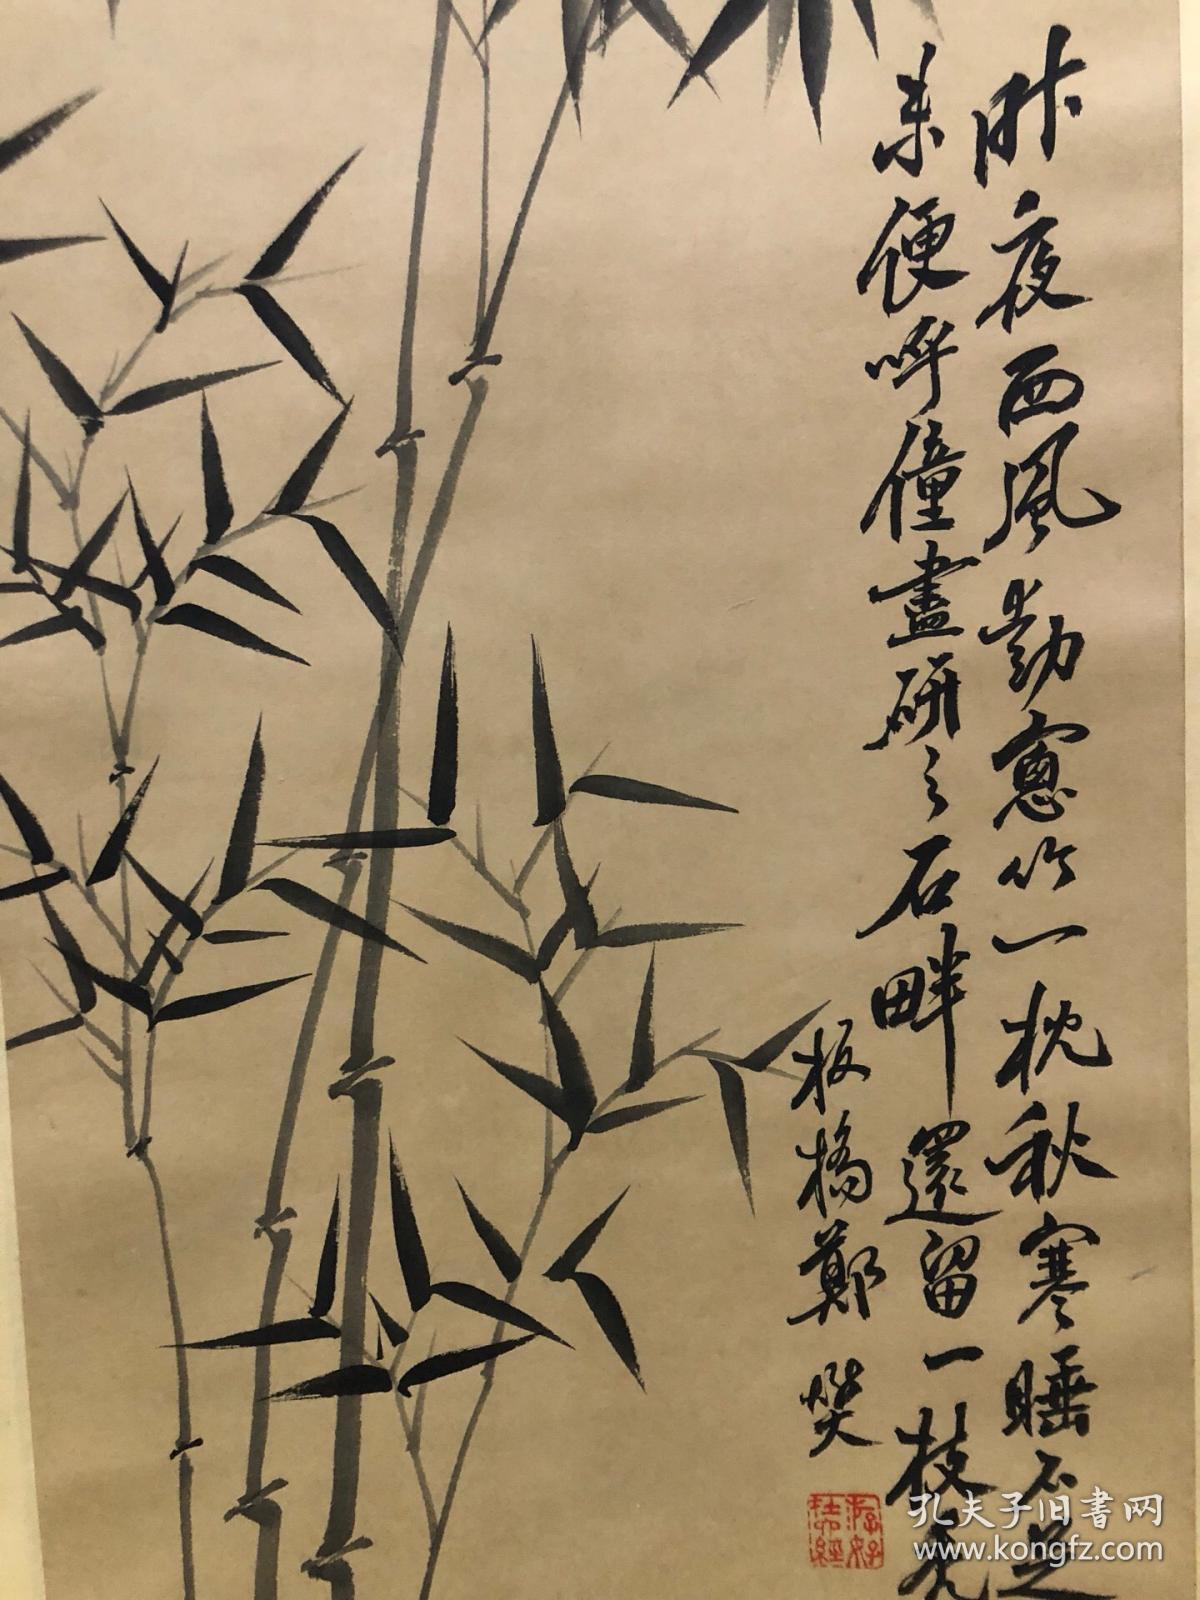 昨夜西風動窻竹一枕秋寒睡不足
来便呼僮盡研之石畔還留一枝禿
板橋鄭燮
游好在六經
孔夫子旧書网
www.kongfz.com